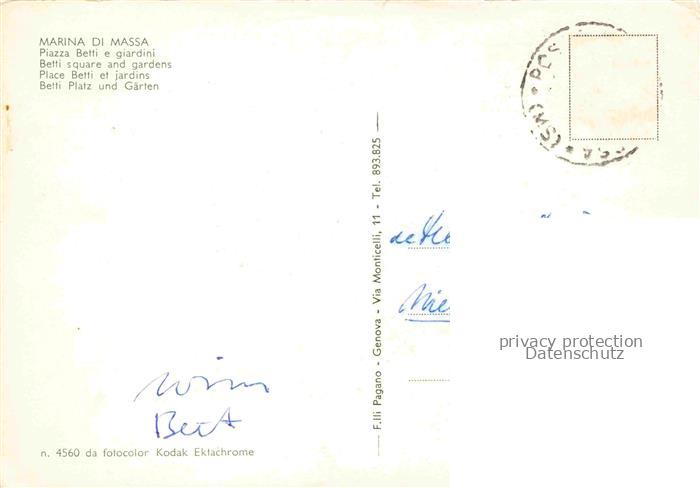 MARINA DI MASSA
Piazza Betti e giardini
Betti square and gardens
Place Betti et jardins
Betti Platz und Gärten
F.lli Pagano - Genova - Via Monticelli, 11 - Tel. 893.825
privacy protection
Datenschutz
Wim
Bert
n. 4560 da fotocolor Kodak Ektachrome